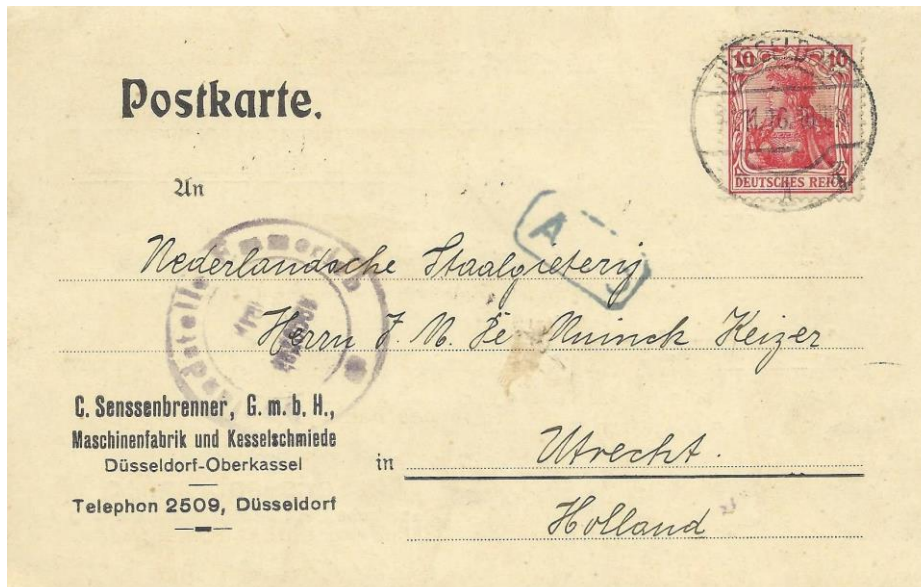 Postkarte.
10 10
DEUTSCHES REICH
An
Nederlandsche Staalgieterij
Herrn J. M. De Muinck Keizer
C. Senssenbrenner, G. m. b. H.,
Maschinenfabrik und Kesselschmiede
Düsseldorf-Oberkassel
Telephon 2509, Düsseldorf
in Utrecht.
Holland
Emmerich
A